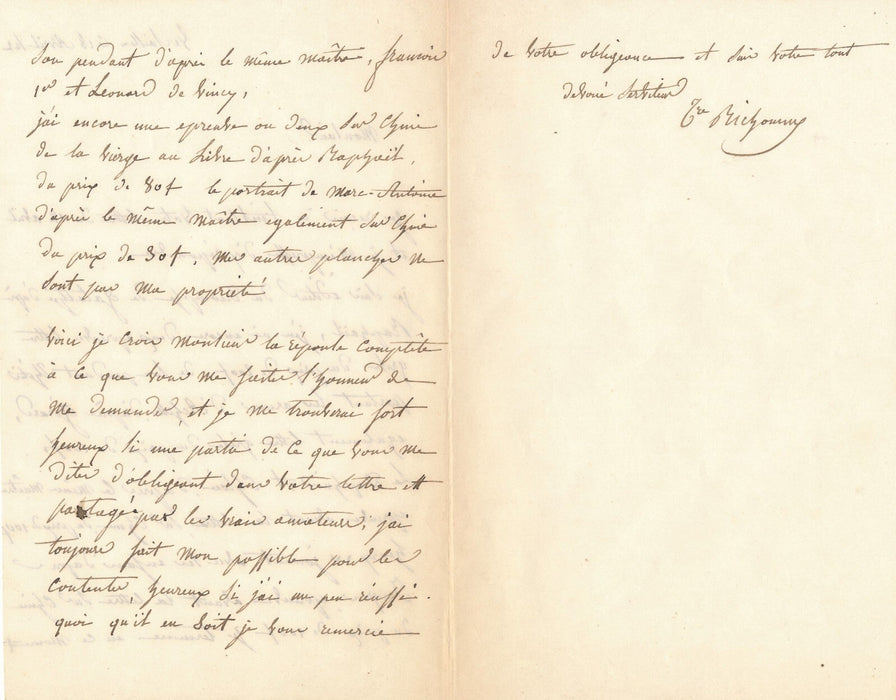 son pendant d'après le même maître, françois
1er et Léonard de Vincy,
j'ai encore une epreuve ou deux sur Chine
de la Vierge au Livre d'après Raphaël,
du prix de 80f le portrait de Marc-Antoine
d'après le même maître egalement sur Chine
du prix de 30f, mes autres planches ne
sont pas ma propriété
Voici je crois Monsieur la réponse complète
à ce que vous me faites l'honneur de
me demander, et je me trouverai fort
heureux si une partie de ce que vous me
dites d'obligeant dans votre lettre est
partagée par les vrais amateurs, j'ai
toujours fait mon possible pour les
contenter, heureux si j'ai un peu réussi.
quoi qu'il en soit je vous remercie
de votre obligeance et suis votre tout
devoué serviteur
Tre Richomme